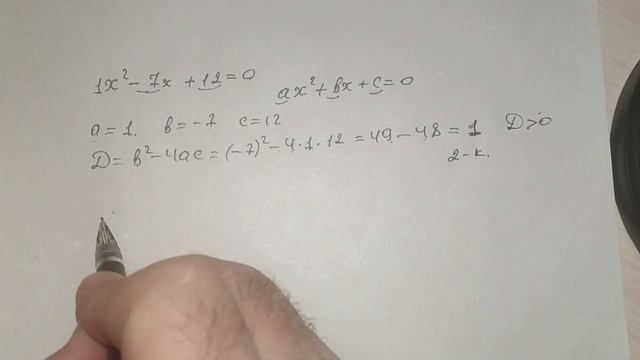 1x² - 7x + 12 = 0   ax² + bx + c = 0
a = 1.   b = -7   c = 12
D = b² - 4ac = (-7)² - 4·1·12 = 49 - 48 = 1   D>0
2-к.